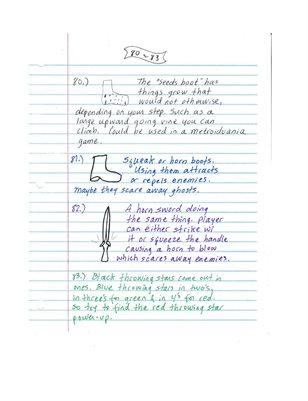 80 ~ 83
80.) The "seeds boot" has
things grow that
would not otherwise,
depending on your step. Such as a
large upward going vine you can
climb. Could be used in a metroidvania
game.
81.) Squeak or horn boots.
Using them attracts
or repels enemies.
maybe they scare away ghosts.
82.) A horn sword doing
the same thing. Player
can either strike w/
it or squeeze the handle
causing a horn to blow
which scares away enemies.
83.) Black throwing stars come out in
ones. Blue throwing stars in two's,
in three's for green & in 4's for red.
So try to find the red throwing star
power-up.